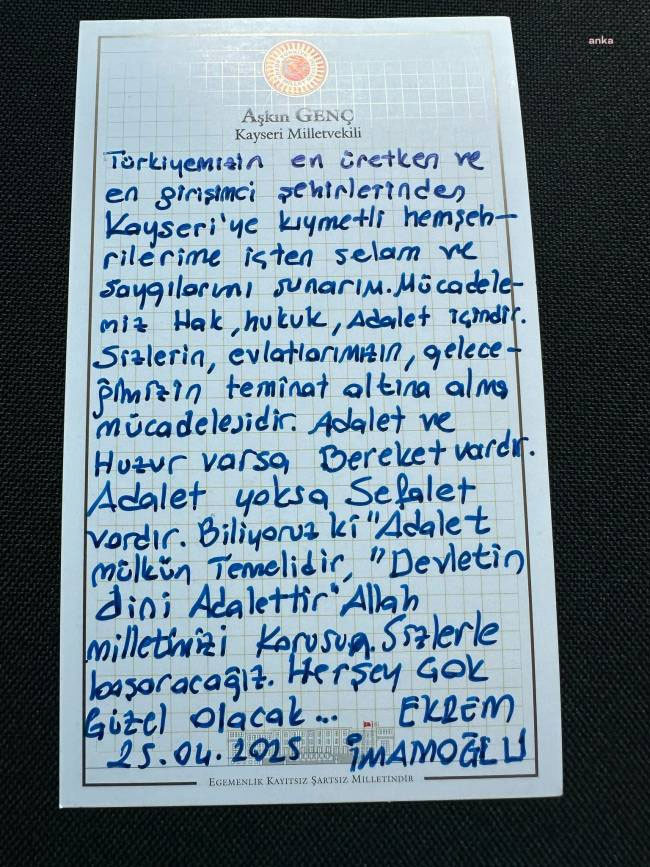 anka
Aşkın GENÇ
Kayseri Milletvekili
Türkiyemizin en üretken ve
en girişimci şehirlerinden
Kayseri'ye kıymetli hemşeh-
rilerime içten selam ve
saygılarımı sunarım. Mücadele-
miz Hak, hukuk, Adalet içindir.
Sizlerin, evlatlarımızın, gelece-
ğimizin teminat altına alma
mücadelesidir. Adalet ve
Huzur varsa Bereket vardır.
Adalet yoksa Sefalet
vardır. Biliyoruz ki "Adalet
mülkün Temelidir, "Devletin
dini Adalettir" Allah
milletimizi Korusun. Sizlerle
başaracağız. Herşey Çok
Güzel olacak... EKREM
25.04.2025 İMAMOĞLU
EGEMENLİK KAYITSIZ ŞARTSIZ MİLLETİNDİR